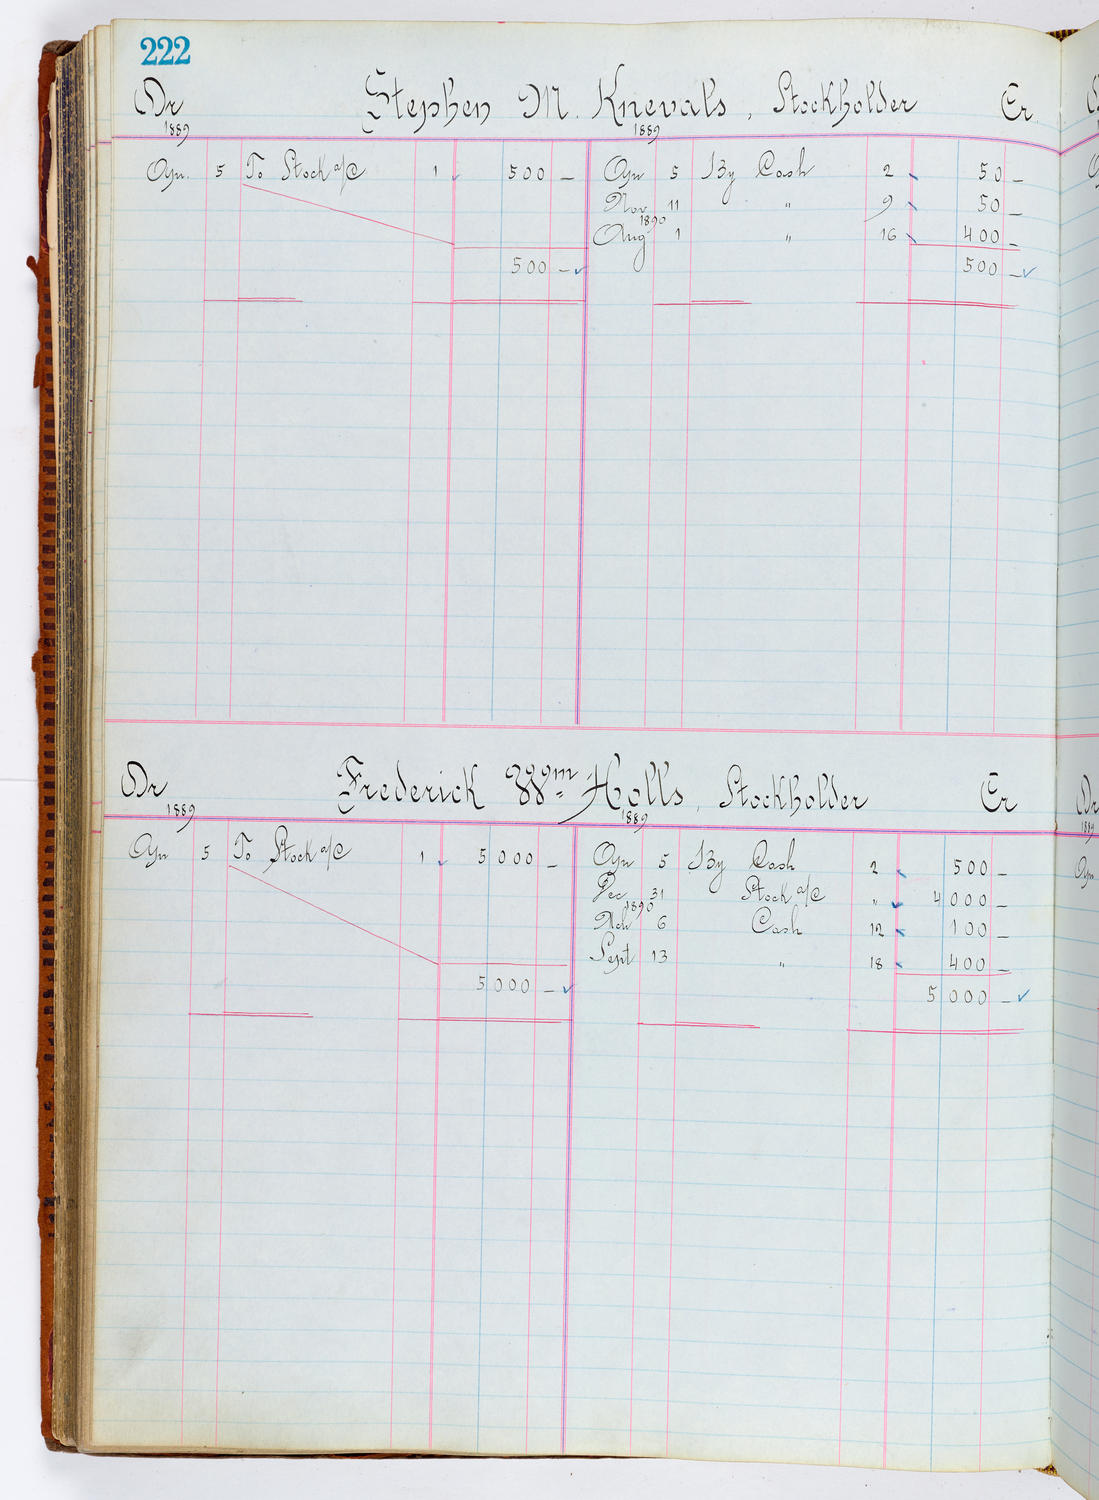 222
Dr Stephen M. Knevals, Stockholder Cr.
1889 1889
Apr. 5 To Stock a/c 1 500 — Apr 5 By Cash 2 50 —
Nov 11 " 9 50 —
1890
Aug 1 " 16 400 —
500 — 500 —
Dr Frederick Wm Holls, Stockholder Cr
1889 1889
Apr 5 To Stock a/c 1 5000 — Apr 5 By Cash 2 500 —
Dec 31 Stock a/c " 4000 —
1890
Mch 6 Cash 12 100 —
Sept 13 " 18 400 —
5000 — 5000 —